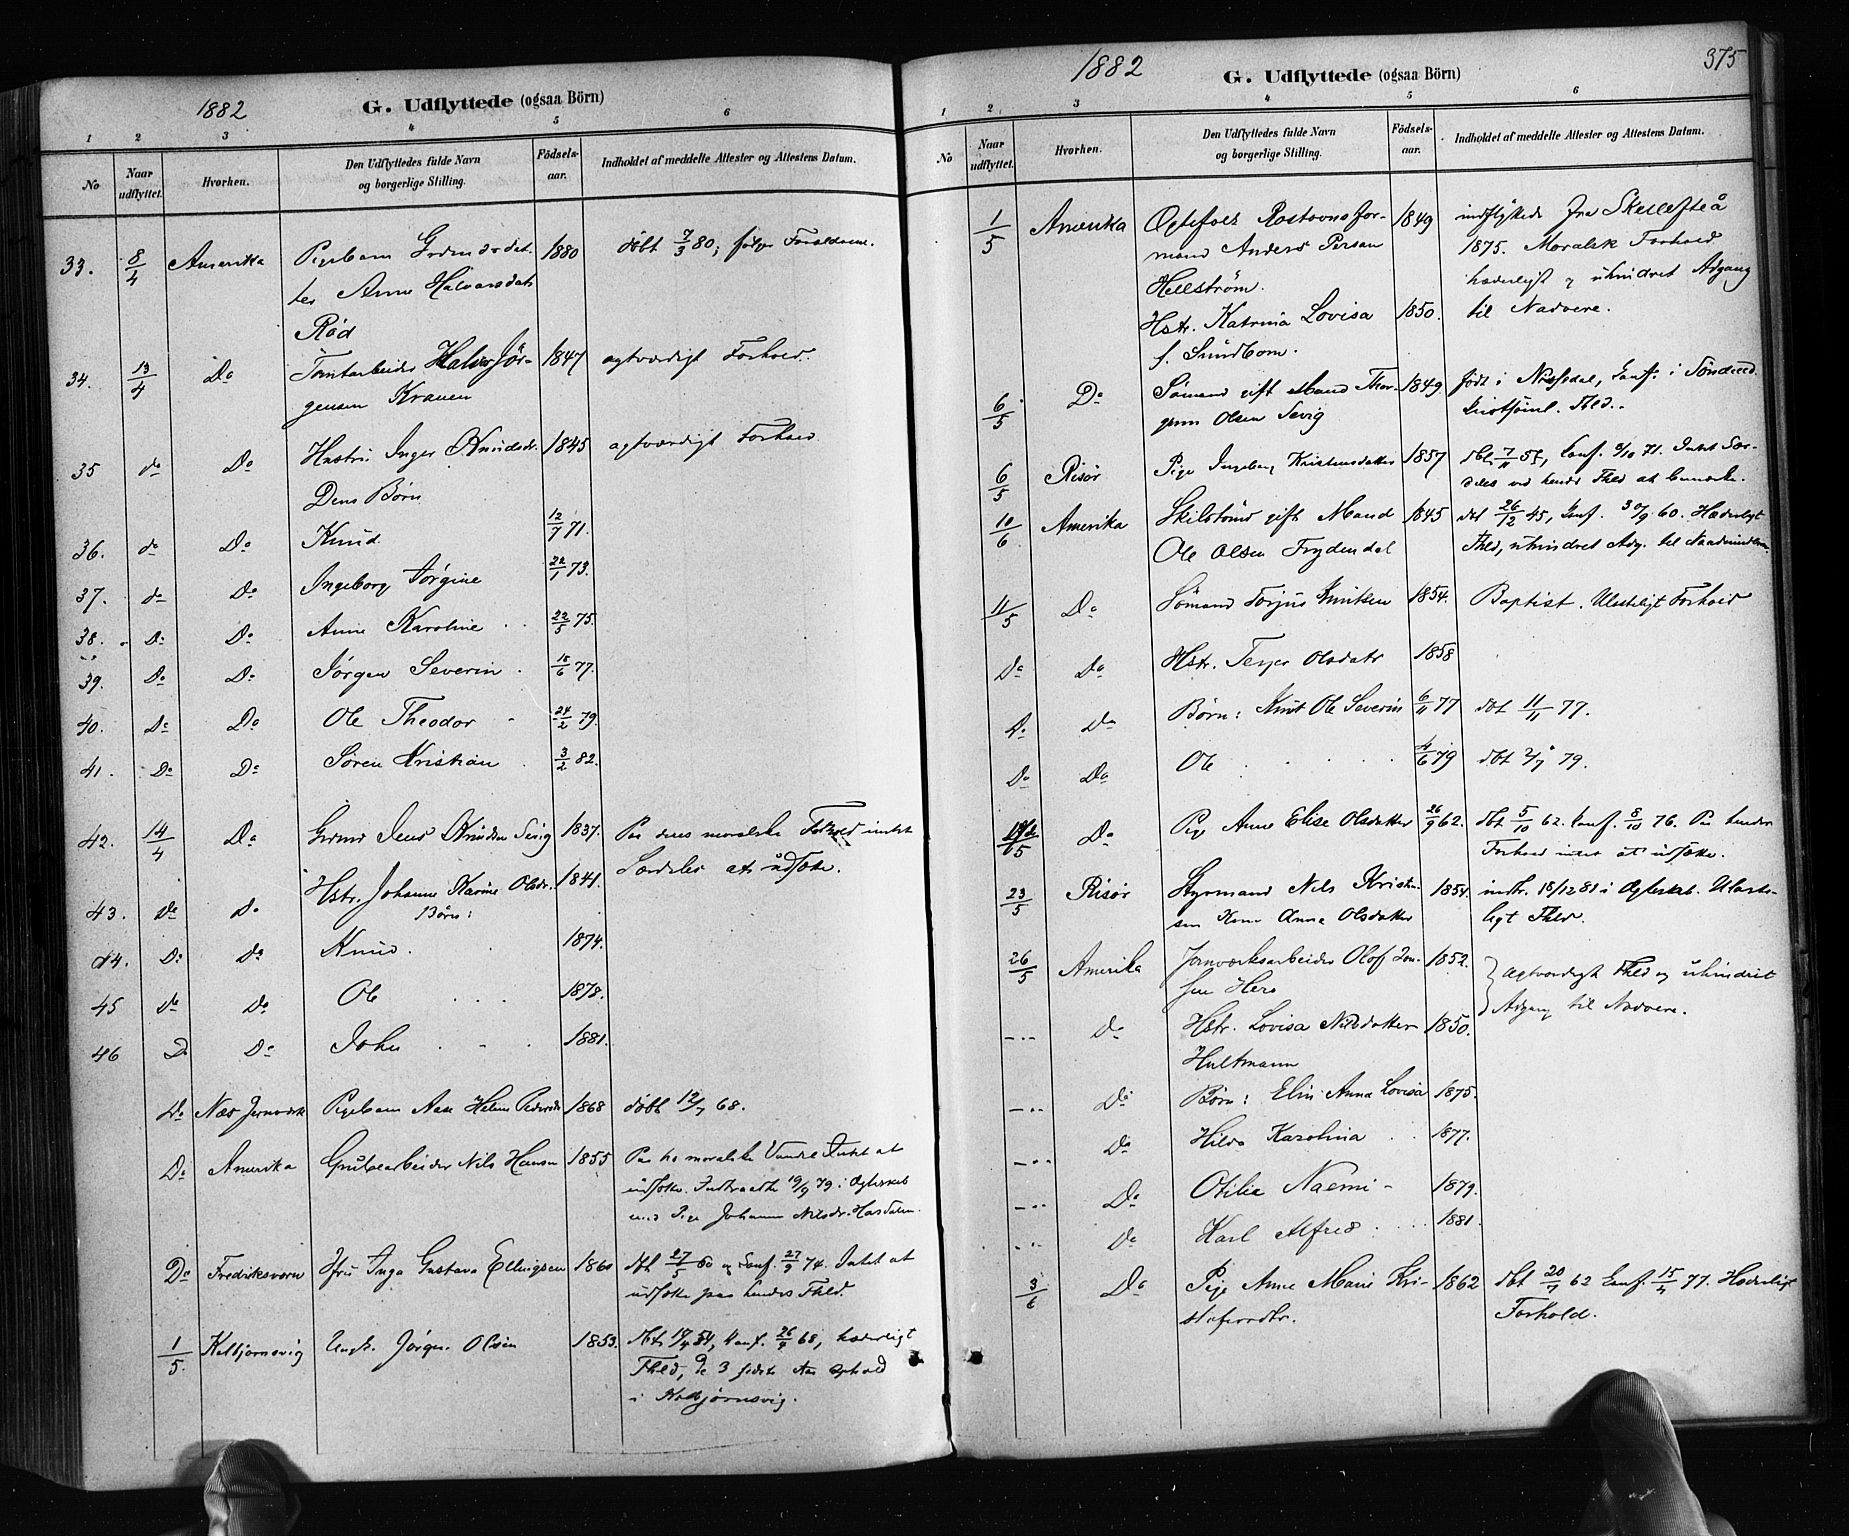 1882
G. Udflyttede (ogsaa Börn)
1 2 3 4 5 6
No
Naar udflyttet.
Hvorhen.
Den Udflyttedes fulde Navn
og borgerlige Stilling.
Födsels-
aar.
Indholdet af meddelte Attester og Attestens Datum.
33. 8/4 Amerika Pigebarn 1880 döbt 7/3 80; følger Forældrene.
Anne Halvorsdatr
Rød
34. 13/4 Do Halvor Jør- 1847 agtværdigt Forhold.
gensen
35 do Do Hustru Inger Knudsdr. 1845 agtværdigt Forhold
Deres Børn
36. do Do Knud 12/7 71.
37. do Do Ingeborg Jørgine 22/1 73.
38. Do Do Anne Karoline 22/5 75.
39. Do Do Jørgen Severin 15/6 77.
40. Do Do Ole Theodor 24/2 79.
41. Do Do Søren Kristian 3/2 82.
42. 14/4 Do Jens Knudsen 1837. Paa deres moralske Forhold intet
Særdeles at udsætte.
43. Do Do Hstr. Johanne Karine Olsdr. 1841.
Børn:
44. Do Do Knud. 1874.
45 Do Do Ole 1878.
46 Do Do John 1881.
Do Næs Jernværk Pigebarn Aase Helene Pedersdr 1868 döbt 12/7 68.
Do Amerika Grubearbeider Nils Hansen 1855 Paa hs moralske Vandel Intet at
udsætte. Indtraadte 19/9 79 i Ægteskab
med Pige Johanne Nilsdr.
Do Fredriksværn Inga Gustava Ellingsen 1860 dbt 27/5 60 og Conf. 27/9 74. Intet at
udsætte paa hendes Fhld.
1/5 Kolbjørnsvig Ungk. Jørgen Olsen 1853. Konf. 68, hæderligt
Fhld, de 3 sidste Aar ophold
i Kolbjørnsvig.
1882
G. Udflyttede (ogsaa Börn)
375
1 2 3 4 5 6
No
Naar
udflyttet.
Hvorhen.
Den Udflyttedes fulde Navn
og borgerlige Stilling.
Födsels-
aar.
Indholdet af meddelte Attester og Attestens Datum.
1/5 Amerika Ægtefolk 1849 indflyttede fra Skellefteå
mand Anders Persan 1875. Moralsk Forhold
Hellström. hæderligt og uhindret Adgang
Hstr. Katrina Lovisa 1850. til Nadvere.
f. Sundbom.
6/5 Do Sømand gift Mand 1849 født i Nissedal, Conf. i Søndeled
Olsen Sevig
6/5 Risør Pige Ingeborg Kristensdatter 1857 Conf. 71. Intet Sær-
deles ved hendes Fhld at bemærke.
10/6 Amerika gift Mand 1845 dbt 26/12 45, Conf. 60. Hæderligt
Ole Olsen Frydendal Fhld, uhindret Adg. til
11/5 Do Sømand Torjus Knutsen 1854. Baptist. Ulasteligt Forhold
Do Do Hstr. Olsdatr 1858
Do Do Børn: Knut Ole Severin 6/11 77 dbt 11/11 77.
Do Do Ole 4/6 79 dbt 79.
Do Pige Anne Elise Olsdatter 26/9 62. dbt 5/10 62. Conf. 8/10 76. Paa hendes
Forhold intet at udsætte.
23/5 Risør Styrmand Nils Kristen- 1854. indtr. 18/12 81 i Ægteskab. Ulaste-
sen Anna Olsdatter ligt Fhld.
26/5 Amerika Jernværksarbeider Olof 1852. Agtværdigt Fhld og uhindret
Adgang til Nadvere.
Do Hstr. Lovisa Nilsdatter 1850.
Hultmann
Do Børn: Elin Anna Lovisa 1875.
Do Hilda Karolina 1877.
Do Otilia Naemi 1879.
Do Karl Alfred 1881.
3/6 Do Pige Anne Marie Kri- 1862 dbt 20/7 62 Conf. 15/4 77. Hæderligt
stofersdtr. Forhold.